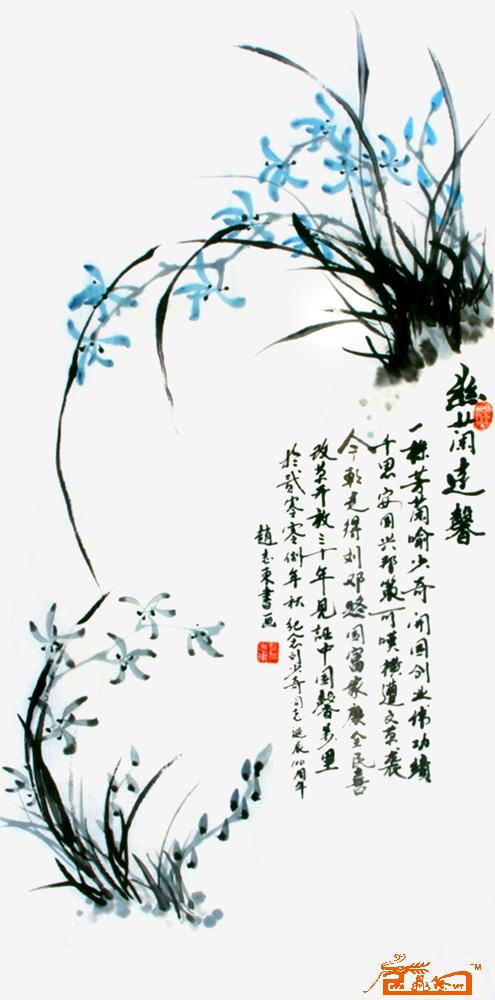 幽兰馨
一株芳蘭喻少奇开国创业伟功绩
千思安国兴邦策可嘆横遭文革袭
今朝走得刘邓路国富家康全民喜
改革开放三十年见证中国馨万里
於贰零零捌年秋纪念刘少奇同志诞辰110周年
趙志東書画
TM